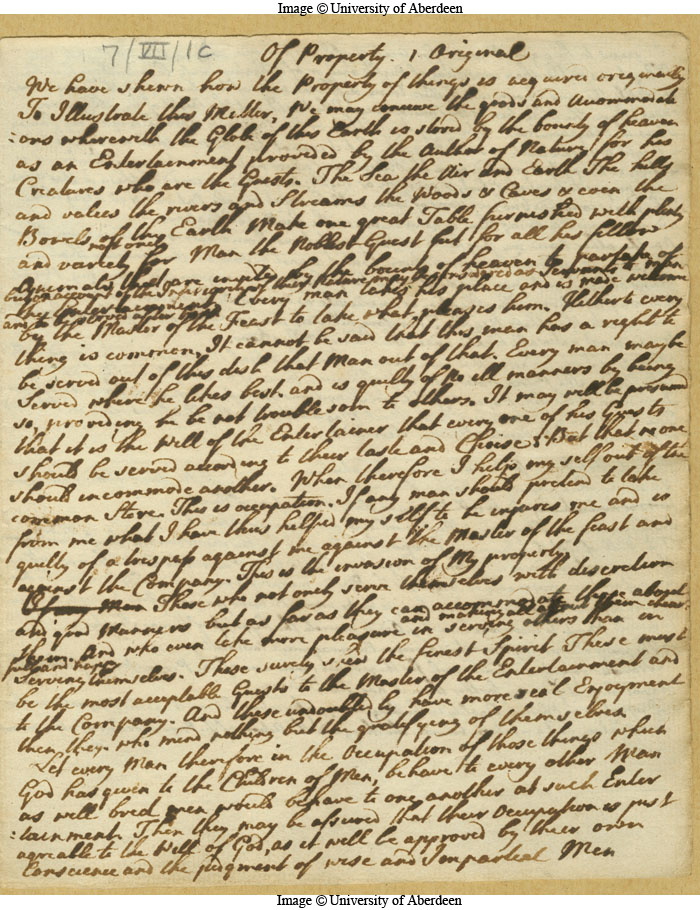 Image © University of Aberdeen
7/VII/1c
Of Property. 1 Original
We have shewn how the Property of things is acquired originally
To Illustrate this Matter, We may conceive the goods and Accommodati
:ons wherewith the Globe of this Earth is stored by the bounty of heaven
as an Entertainment provided by the Author of Nature for his
Creatures who are the Guests. The Sea the Air and Earth The hills
and valies the rivers and Streams the Woods & Caves & even the
Bowels of this Earth Make one great Table furnished with plenty
and variety for not only Man the Noblest Guest but for all his fellow
Animals that are invited by the bounty of heaven to partake of
but on account of the Superiority of their Nature may be considered as Servants to
the Entertainment. Every man takes his place and is made welcome
by the Master of the Feast to take what pleases him. Hitherto every
thing is common, It cannot be said that this man has a right to
be served out of this dish that Man out of that. Every man may be
Served where he likes best. and is guilty of no ill manners by being
so, providing he be not troublesom to others. It may well be presumed
that it is the Will of the Entertainer that every one of his Guests
should be served according to their taste and Choise. But that no one
should incommode another. When therefore I help my self out of the
common Store. This is occupation. If any man should pretend to take
from me what I have thus helped my self to he injures me and is
guilty of a trespass against me against the Master of the feast and
against the Company. This is the invasion of My property.
Those who not only serve themselves with discretion
and good Manners but as far as they can accommodate those about
them. and making all about them chearfull and happy And who even take more pleasure in serving others than in
Serving themselves. These surely shew the finest Spirit These must
be the most acceptable Guests to the Master of the Entertainment and
to the Company. And these undoubtedly have more real Enjoyment
then they who mind nothing but the gratifying of themselves
Let every Man therefore in the Occupation of those things which
God has given to the Children of Men, behave to every other Man
as well bred men would behave to one another at such Enter
:tainment. Then they may be assured that their Occupation is just
agreable to the Will of God, as it will be approved by their own
Conscience and the judgment of wise and Impartial Men
Image © University of Aberdeen